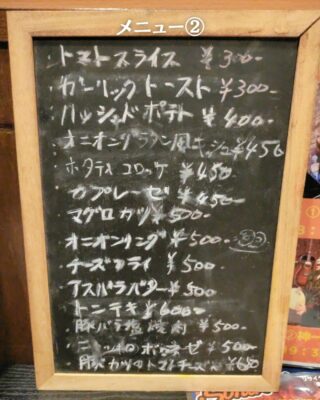 メニュー②
・トマトスライス ¥300-
・ガーリックトースト ¥300-
・ハッシュドポテト ¥400-
・オニオングラタン風キッシュ¥450
・ホタテコロッケ ¥450
・カプレーゼ ¥450-
・マグロカツ¥500-
・オニオンリング¥500-
・チーズフライ ¥500-
・アスパラバター¥500-
・トンテキ¥600-
・豚バラ塩焼肉 ¥500-
ボロネーゼ ¥500-
・豚カツのトマトチーズ ¥650